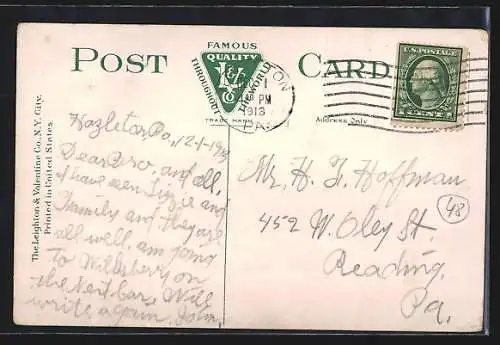 POST CARD
FAMOUS
QUALITY
THROUGHOUT THE WORLD
L&V
Co
TRADE MARK
1 PM
1913
PA.
U.S. POSTAGE
Address Only
The Leighton & Valentine Co., N.Y. City.
Printed in United States.
Hazleton, Pa, 12-1-1913
Dear Bro, and all,
I have seen Lizzie and
Family and they are
all well. am going
to Willsberry on
the Neit bar, Will
write again, John,
Mr. H. F. Hoffman
452 W. Oley St.
Reading,
Pa.
48